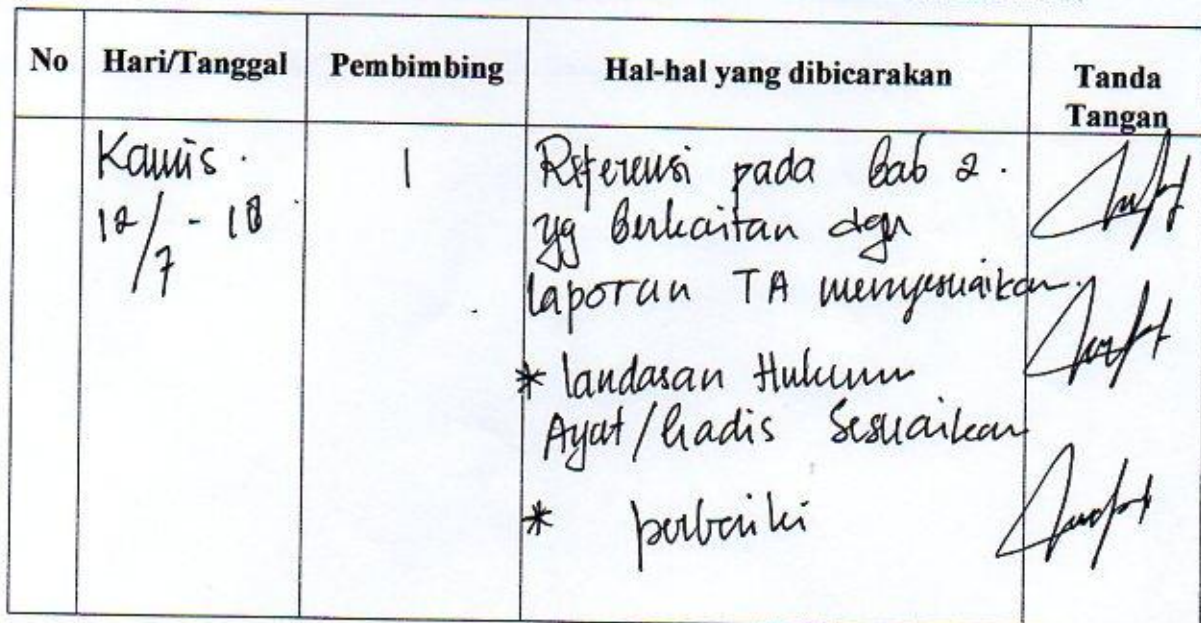 No Hari/Tanggal Pembimbing Hal-hal yang dibicarakan Tanda Tangan
Kamis. 1 Referensi pada Bab 2.
12/7 - 18 yg Berkaitan dgn
laporan TA menyesuaikan.
* landasan Hukum
Ayat/hadis Sesuaikan
* perbaiki